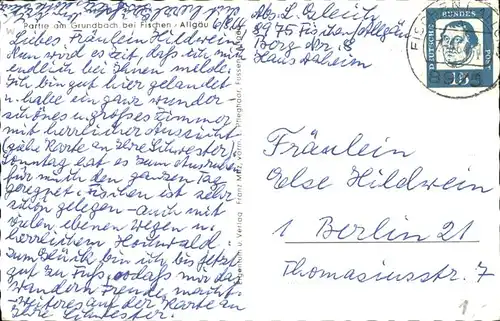 Partie am Grundbach bei Fischen - Allgäu 6/8.64
Liebes Fräulein Hildwein,
Nun wird es Zeit, daß ich mich
endlich bei Ihnen melde.
Ich bin gut hier gelandet
u. habe ein ganz wunder-
schönes großes Zimmer
mit herrlicher Aussicht
(siehe Karte an Ihre Schwester)
Sonntag hat es zum Ausruhen
für mich den ganzen Tag
geregnet. Fischen ist sehr
schön gelegen - auch mit
vielen ebenen Wegen u.
herrlichem Hochwald.
Zum Glück bin ich bis jetzt
gut zu Fuß, sodaß mir das
Wandern Freude macht.
Weiteres auf der Karte an
Ihre Schwester.
Abs. L.
8975 Fischen/Allgäu
Berg Nr. 8
Haus Daheim
DEUTSCHE BUNDESPOST
15
Fräulein
Else Hildwein
1 Berlin 21
Thomasiusstr. 7
1,-